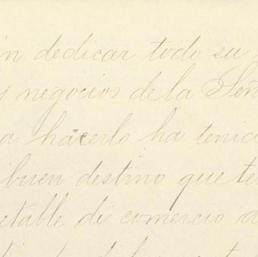 n dedicar todo su
s negocios de la Señ
a hacerlo ha tenid
buen destino que te
etable di comercio